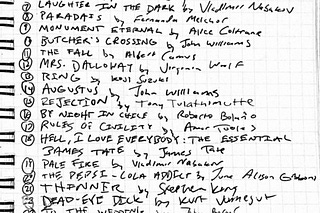 ⑦ LAUGHTER IN THE DARK by Vladimir Nabokov
⑧ PARADAIS by Fernanda Melchor
⑨ MONUMENT ETERNAL by Alice Coltrane
BUTCHER'S CROSSING by John Williams
THE FALL by Albert Camus
⑫ MRS. DALLOWAY by Virginia Woolf
⑬ RING by Koji Suzuki
⑭ AUGUSTUS by John Williams
⑮ REJECTION by Tony Tulathimutte
⑯ BY NIGHT IN CHILE by Roberto Bolaño
⑰ RULES OF CIVILITY by Amor Towles
⑱ HELL, I LOVE EVERYBODY: THE ESSENTIAL
JAMES TATE by James Tate
⑲ PALE FIRE by Vladimir Nabokov
⑳ THE PEPSI-COLA ADDICT by June Alison Gibbons
㉑ THINNER by Stephen King
DEAD-EYE DICK by Kurt Vonnegut
TO THE WEDDING by John Berger